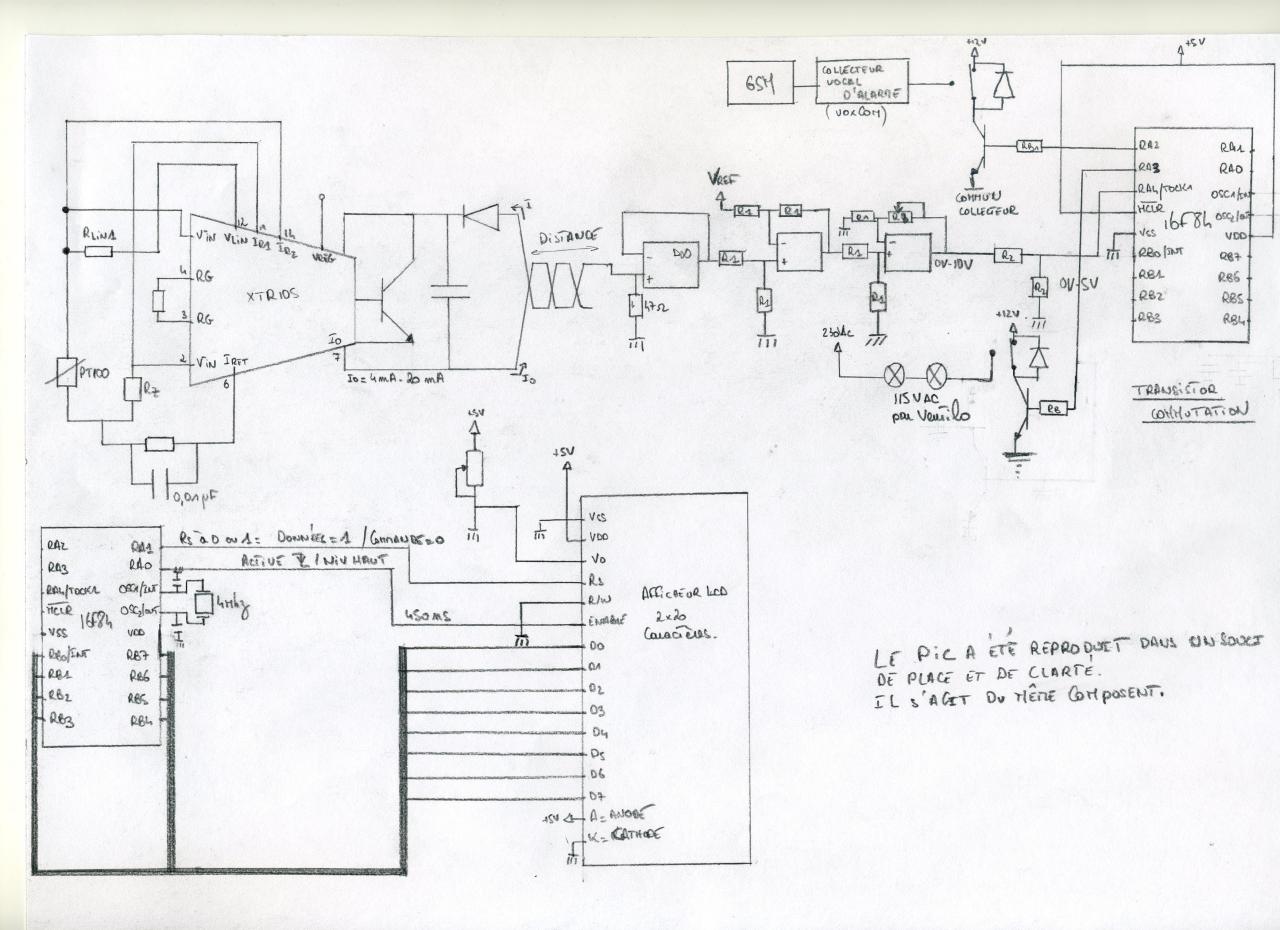 +12V
+5V
GSM
COLLECTEUR
VOCAL
D'ALARME
(VOXCOM)
RB1
COMMUN
COLLECTEUR
RA2
RA3
RA4/TOCK1
MCLR
VCS
RB0/INT
RB1
RB2
RB3
16F84
RA1
RA0
OSC1/INT
OSC2/OUT
VDD
RB7
RB6
RB5
RB4
TRANSISTOR
COMMUTATION
RLIN1
12
1
14
V+IN
VLIN
IR1
IR2
VREG
4
RG
XTR105
3
RG
2
V-IN
IRET
6
IO
7
IO = 4mA - 20 mA
PT100
RZ
0,01µF
I
IO
DISTANCE
47Ω
R1
VREF
R1
R1
R1
R1
R1
R1
0V-10V
R2
R2
0V-5V
+12V
RB
230AC
115VAC
par Ventilo
+5V
+5V
RS à 0 ou 1 = DONNÉES = 1 / COMMANDE = 0
ACTIVE / NIV HAUT
450ms
RA2
RA3
RA4/TOCK1
MCLR
VSS
RB0/INT
RB1
RB2
RB3
16F84
RA1
RA0
OSC1/INT
OSC2/OUT
VDD
RB7
RB6
RB5
RB4
4Mhz
VCS
VDD
VO
RS
R/W
ENABLE
D0
D1
D2
D3
D4
D5
D6
D7
+5V
A = ANODE
K = CATHODE
AFFICHEUR LCD
2x20
Caractères.
LE PIC A ÉTÉ REPRODUIT DANS UN SOUCI
DE PLACE ET DE CLARTÉ.
IL S'AGIT DU MÊME COMPOSENT.